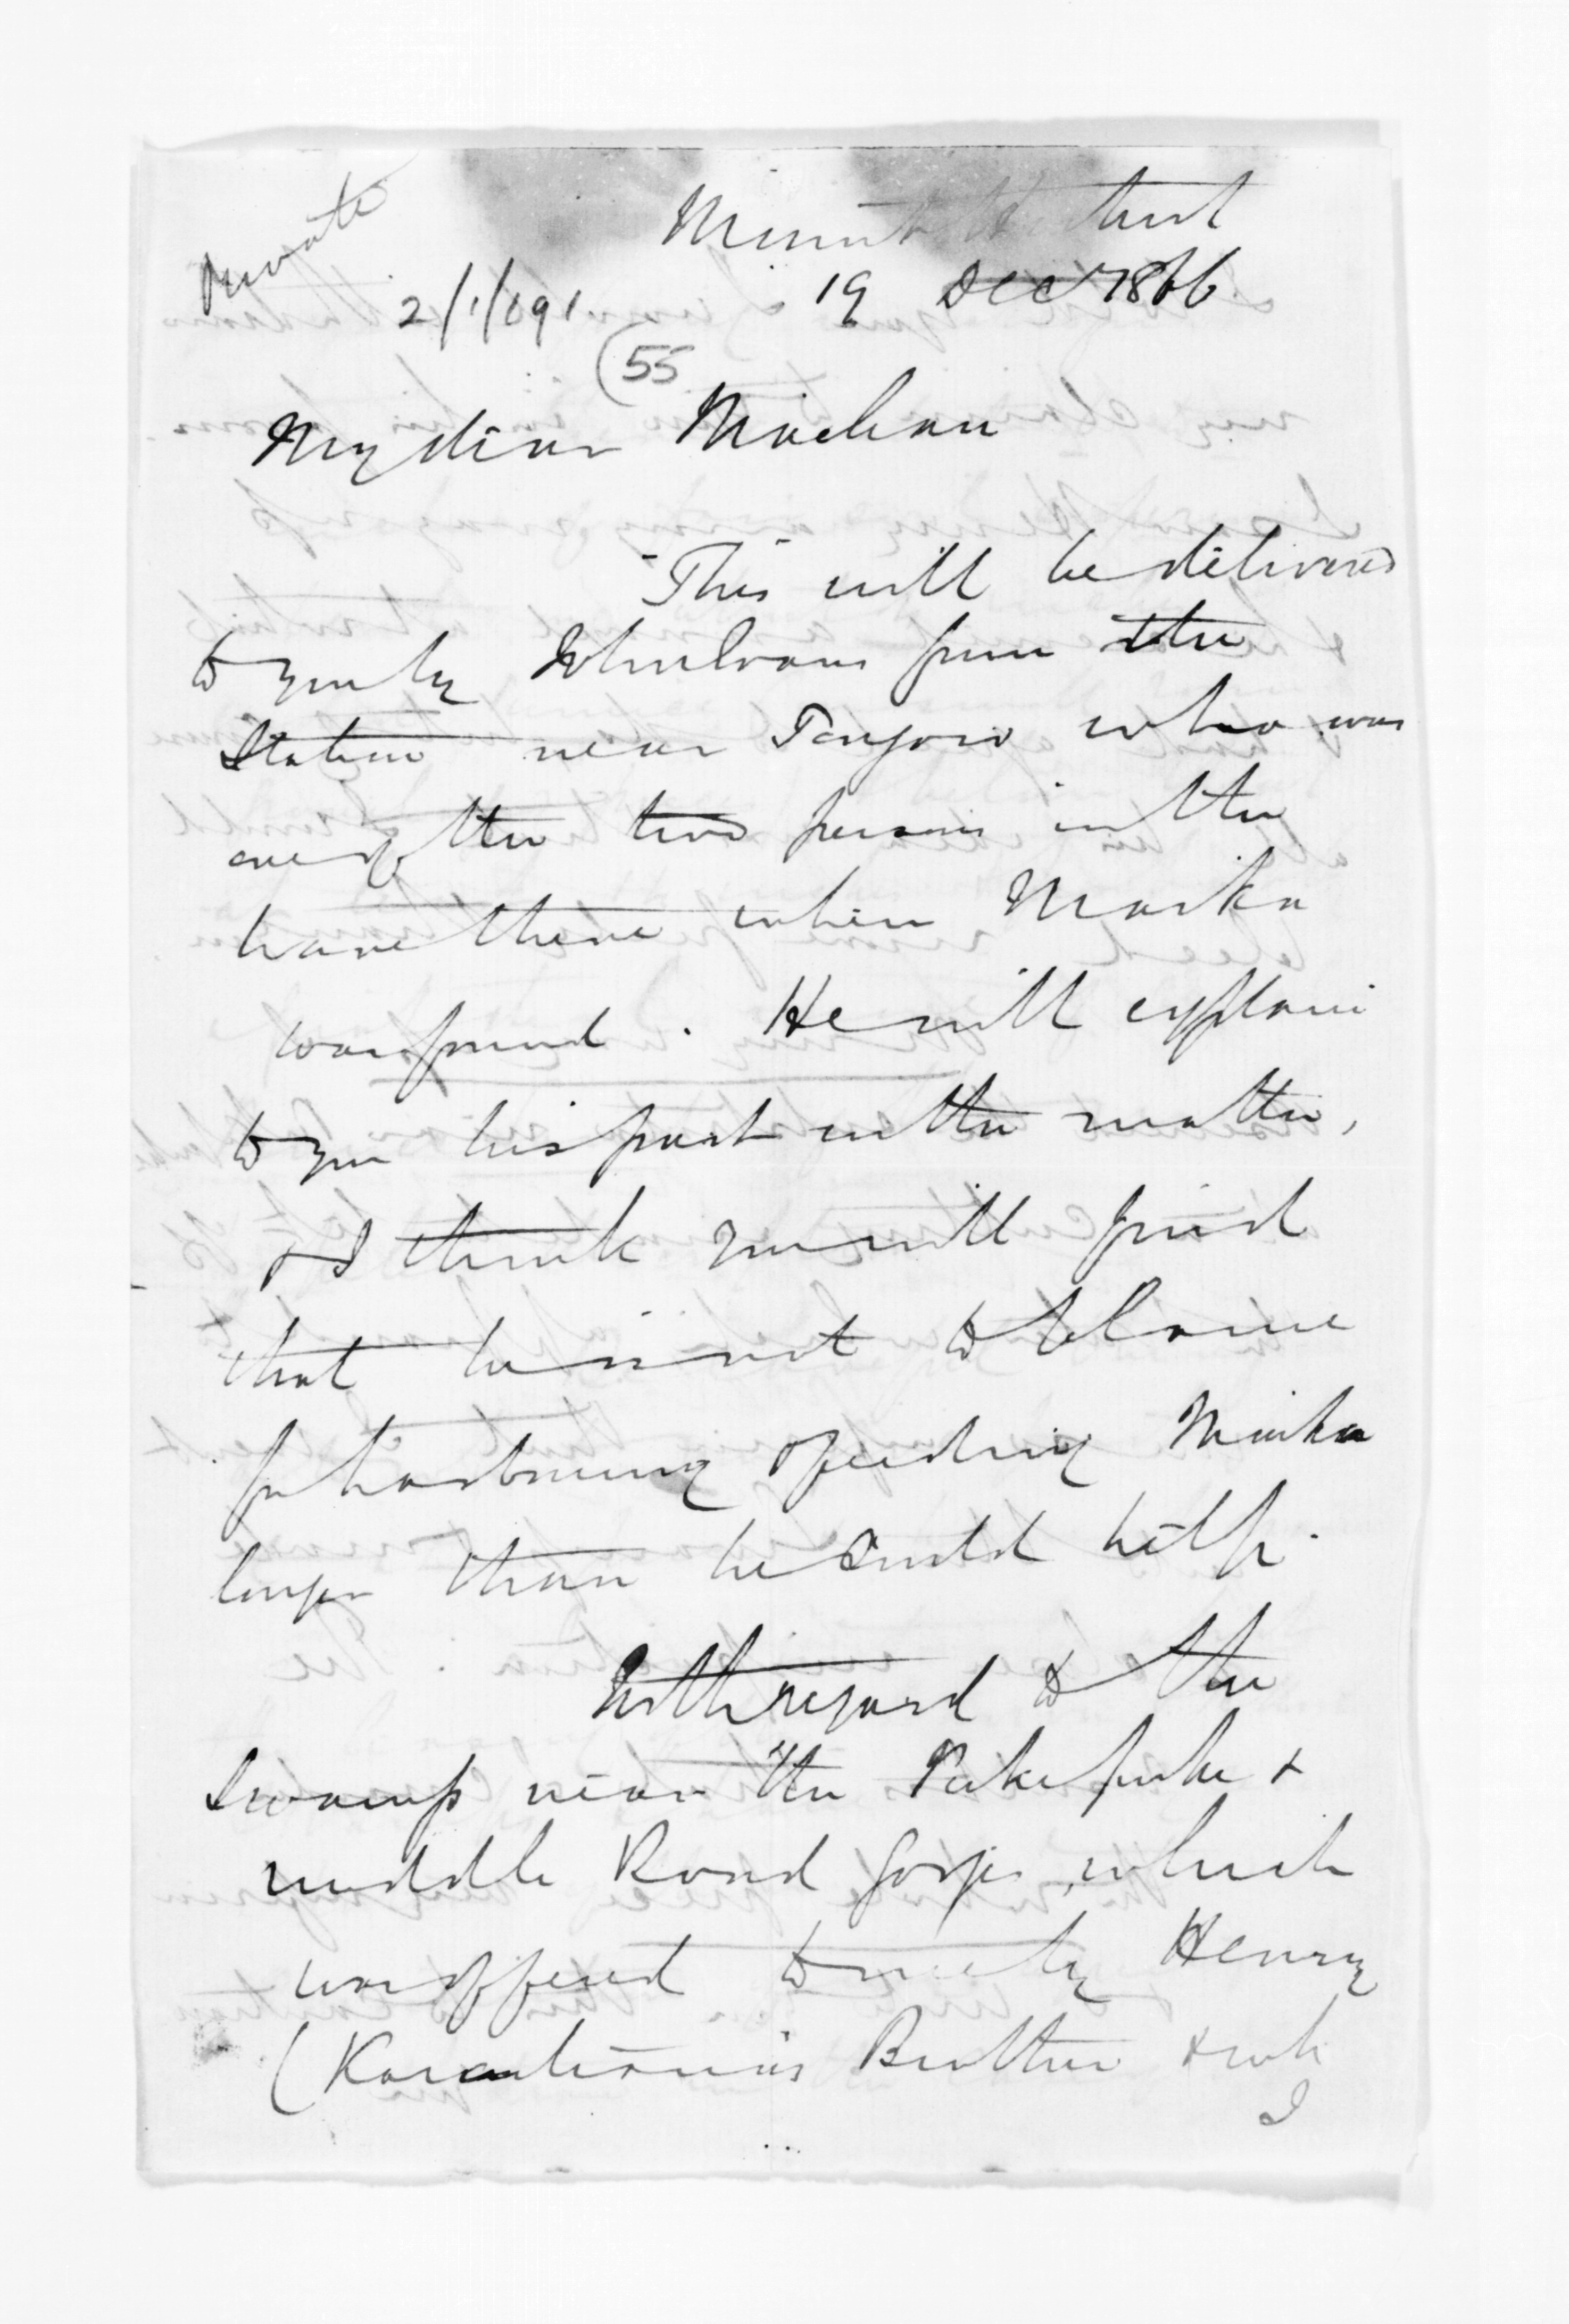 Private
Mount Herbert
2/1/091 19 Dec 1866
55
My dear Maclean
This will be delivered
to you by from the
Station near Tangoio who was
one of the two persons in the
house there when Maika
was found. He will explain
to you his part in the matter,
& I think you will find
that he is not to blame
for harbouring & feeding Maika
longer than he could help.
With regard to the
Swamp near the Pukepuke &
middle Road Gorge, which
was offered to me by Henry
( Brother & wh
I